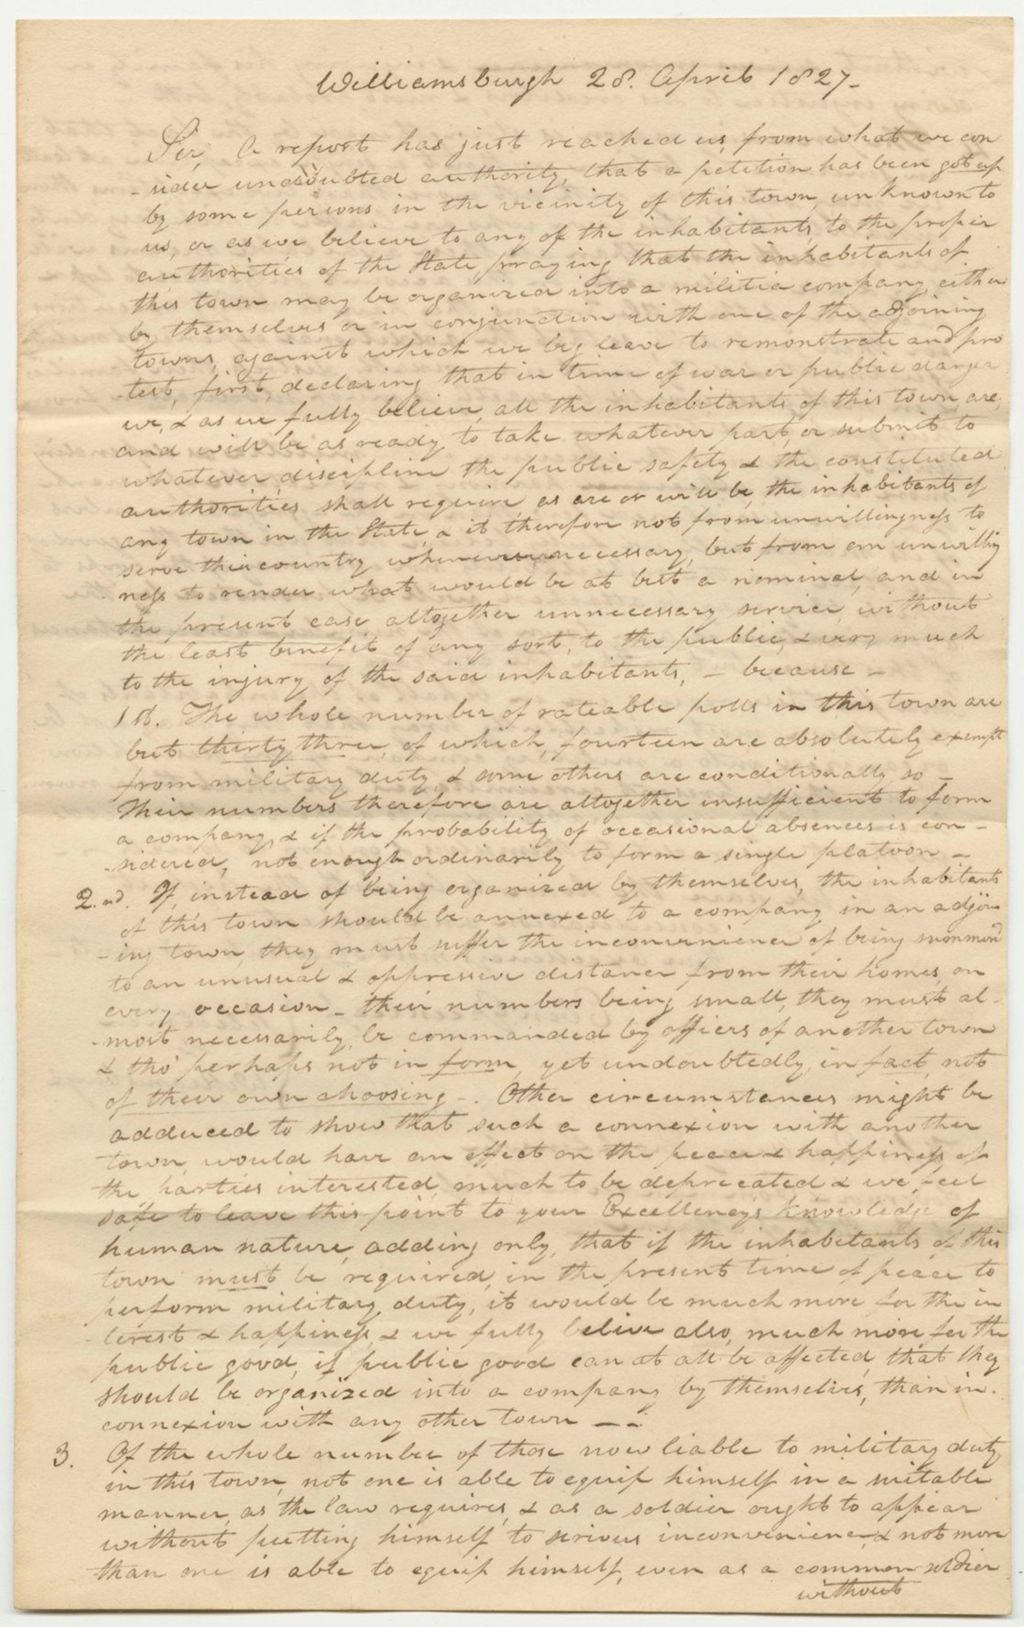 Williamsburgh 28. April 1827-
Sir, A report has just reached us, from what we con
-sider undoubted authority, that a petition has been got up
by some persons in the vicinity of this town, unknown to
us, or as we believe to any of the inhabitants, to the proper
authorities of the State praying that the inhabitants of
this town may be organized into a militia company either
by themselves or in conjunction with one of the adjoining
towns, against which we beg leave to remonstrate and pro
-test, first, declaring that in time of war or public danger
we, & as we fully believe, all the inhabitants of this town, are,
and will be as ready, to take whatever part, or submit to
whatever discipline the public safety & the constituted
authorities shall require, as are or will be, the inhabitants of
any town in the State, & it therefore not from unwillingness to
serve their country whenever necessary, but from an unwilling
ness to render what would be at best a nominal, and in
the present case altogether unnecessary service, without
the least benefit of any sort, to the public, & very much
to the injury of the said inhabitants, - because -
1st. The whole number of rateable polls in this town are
but thirty three, of which, fourteen are absolutely exempt
from military duty & some others are conditionally so -
Their numbers therefore are altogether insufficient to form
a company, & if the probability of occasional absences is con -
-sidered, not enough ordinarily to form a single platoon -
2.nd. If, instead of being organized by themselves, the inhabitants
of this town should be annexed to a company in an adjoin
-ing town, they must suffer the inconvenience of being summoned
to an unusual & oppressive distance from their homes, on
every occasion - their numbers being small, they must al-
-most necessarily, be commanded by officers of another town
& tho' perhaps not in form, yet undoubtedly in fact, not
of their own choosing -. Other circumstances might be
adduced to show that such a connexion with another
town, would have an effect on the peace & happiness of
the parties interested, much to be deprecated & we feel
safe to leave this point to your Excellency's knowledge of
human nature, adding only, that if the inhabitants of this
town must be required, in the present time of peace to
perform military duty, it would be much more for the in
-terest & happiness, & we fully believe also, much more for the
public good, if public good can at all be affected, that they
should be organized into a company by themselves, than in
connexion with any other town - -.
3. Of the whole number of those now liable to military duty
in this town, not one is able to equip himself in a suitable
manner, as the law requires, & as a soldier ought to appear
without putting himself to serious inconvenience, & not more
than one is able to equip himself, even as a common soldier
without